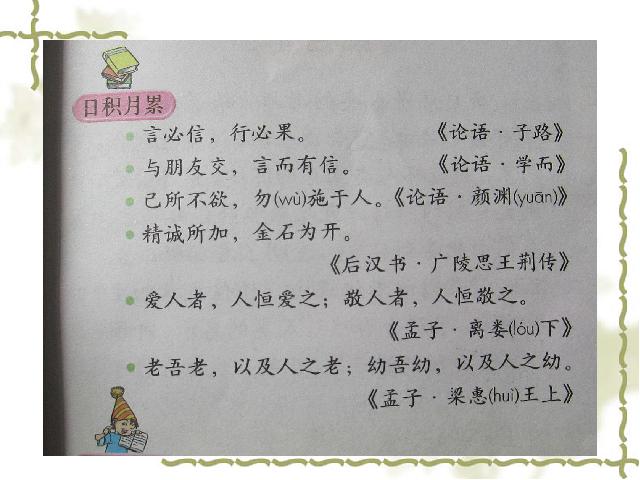 日积月累
言必信，行必果。 《论语·子路》
与朋友交，言而有信。 《论语·学而》
己所不欲，勿(wù)施于人。《论语·颜渊(yuān)》
精诚所加，金石为开。
《后汉书·广陵思王荆传》
爱人者，人恒爱之；敬人者，人恒敬之。
《孟子·离娄(lóu)下》
老吾老，以及人之老；幼吾幼，以及人之幼。
《孟子·梁惠(huì)王上》